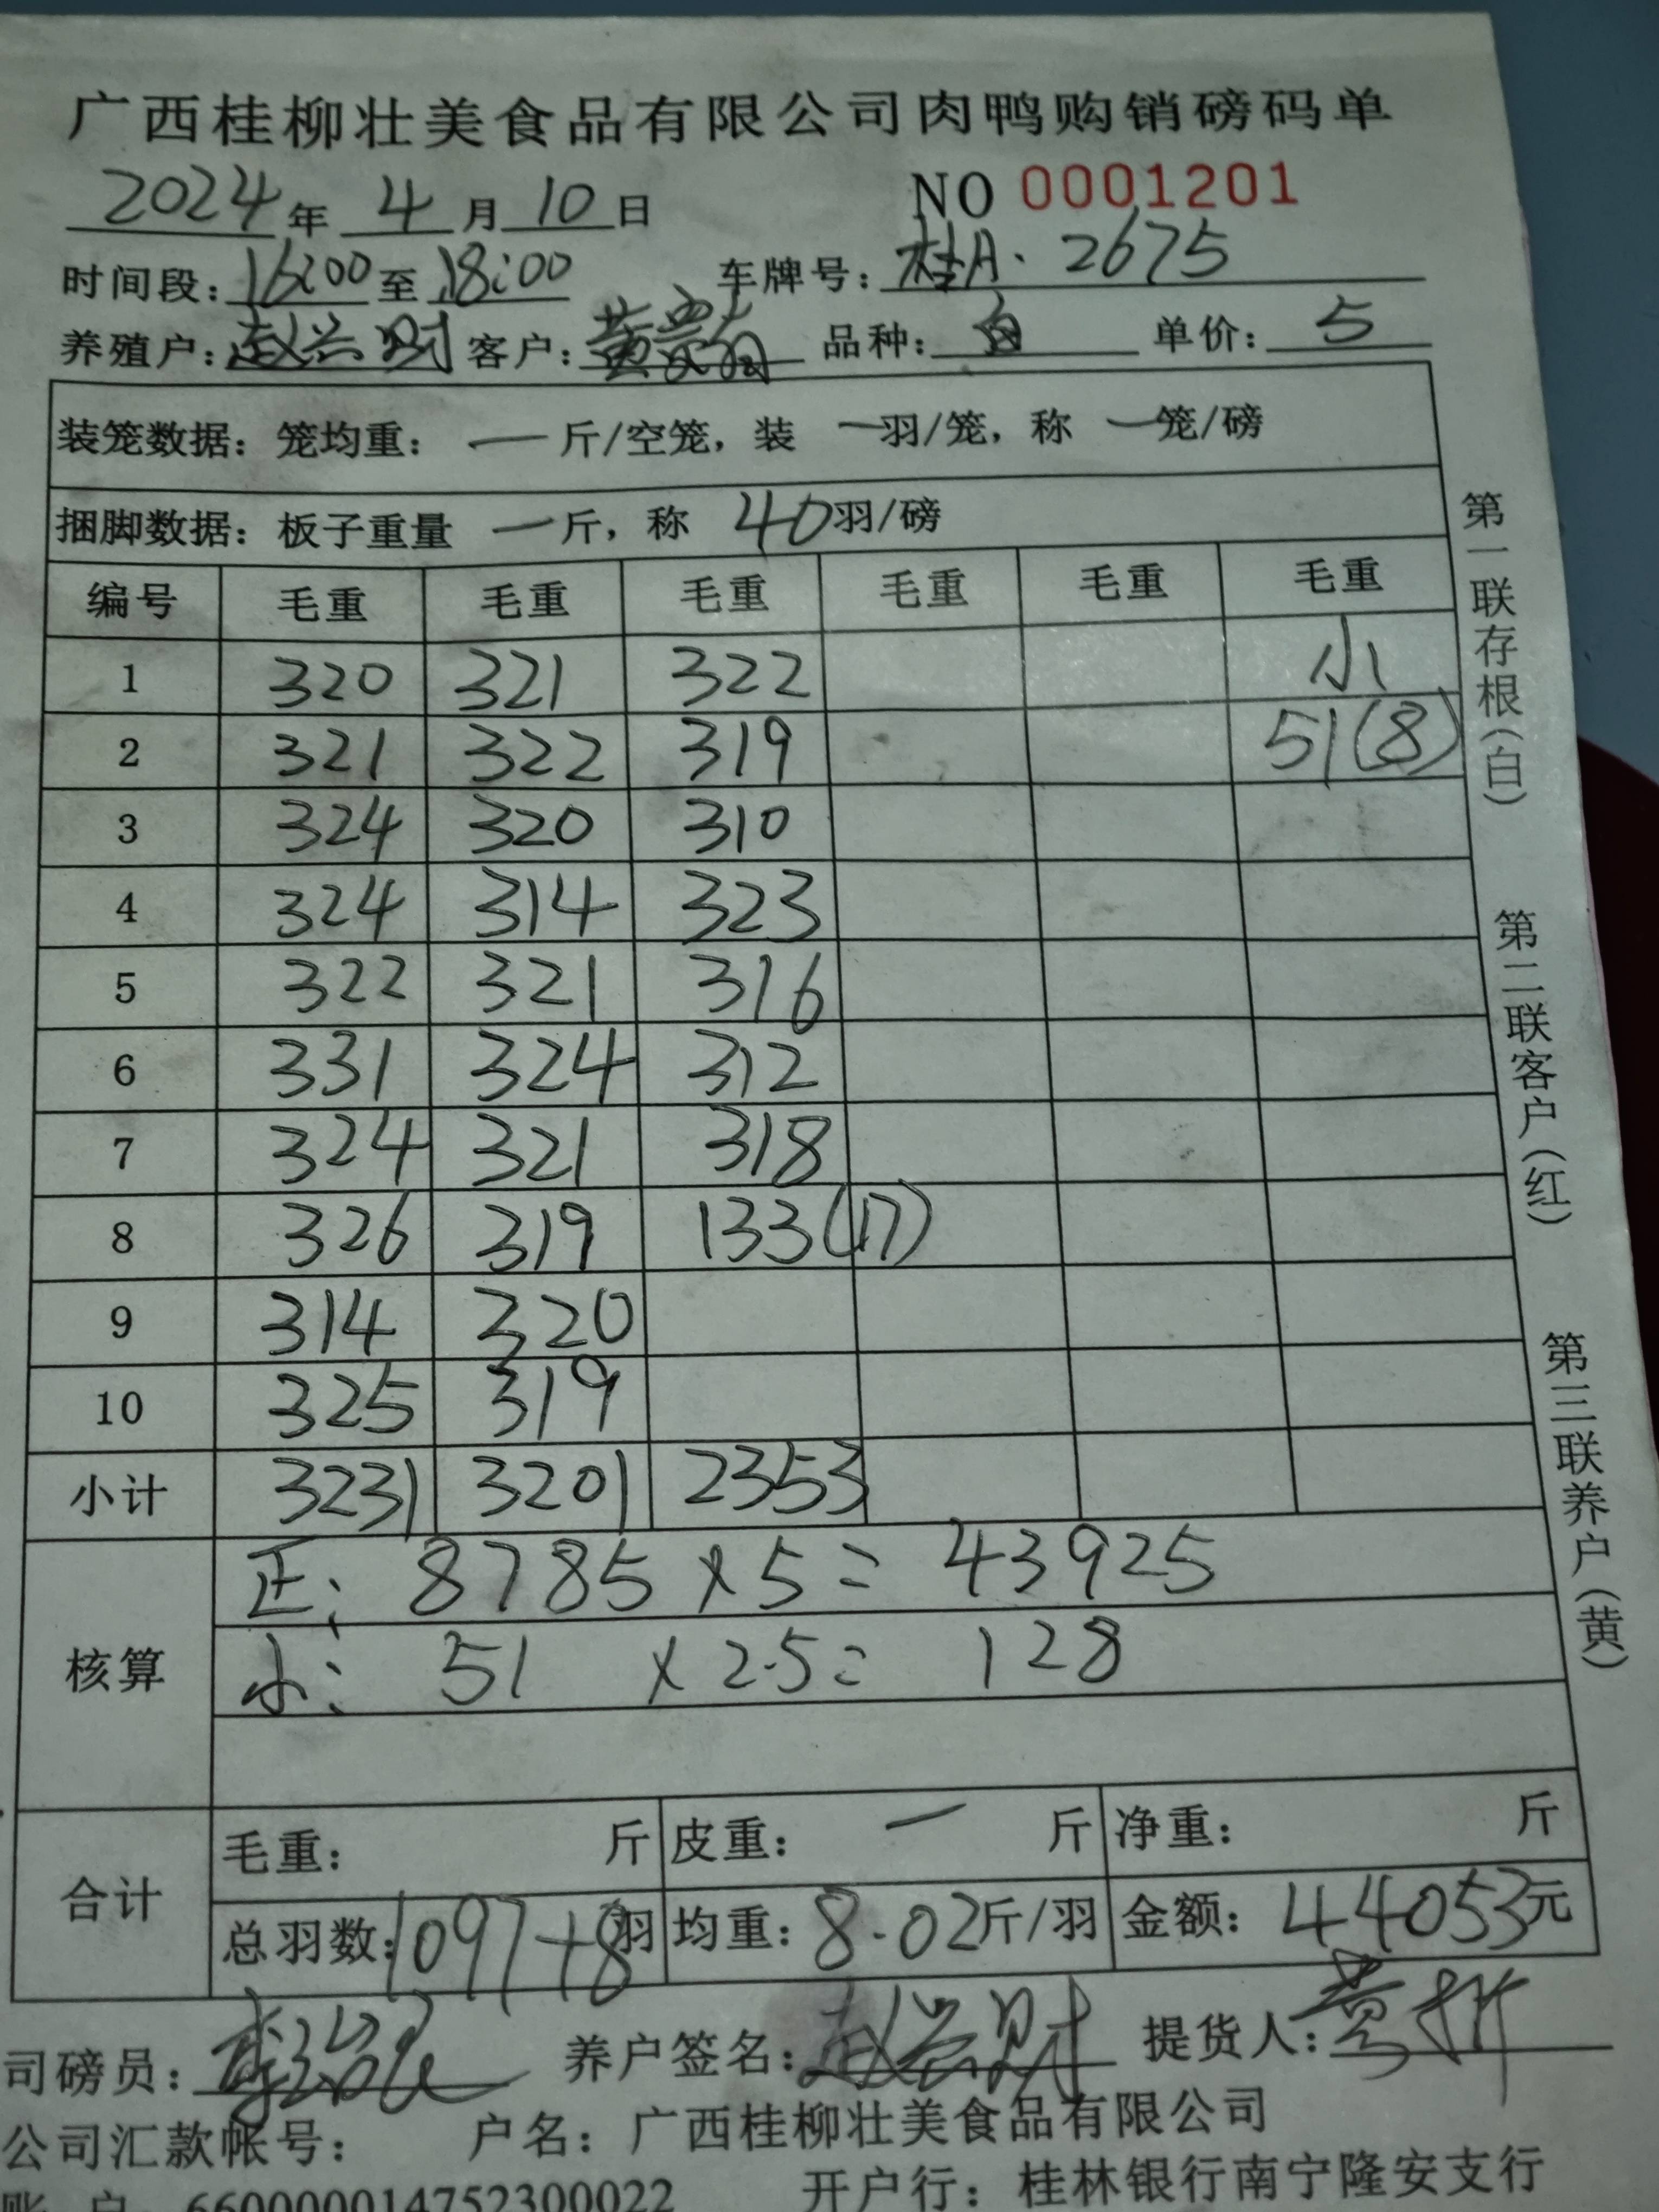 广西桂柳壮美食品有限公司肉鸭购销磅码单
2024年 4月10日 NO 0001201
时间段: 16:00至18:00 车牌号: 桂A·2675
养殖户: 赵兴财 客户: 黄 品种: 白 单价: 5
装笼数据: 笼均重: 一 斤/空笼, 装 一羽/笼, 称 一笼/磅
捆脚数据: 板子重量 一斤, 称 40羽/磅
编号 毛重 毛重 毛重 毛重 毛重 毛重
1 320 321 322 小
2 321 322 319 51(8)
3 324 320 310
4 324 314 323
5 322 321 316
6 331 324 312
7 324 321 318
8 326 319 133(17)
9 314 320
10 325 319
小计 3231 3201 2353
核算
正: 8785 x 5 = 43925
小: 51 x 2.5 = 128
合计
毛重: 斤 皮重: 一 斤 净重: 斤
总羽数: 1097+8羽 均重: 8.02斤/羽 金额: 44053元
司磅员: 李 养户签名: 赵兴财 提货人: 黄
公司汇款帐号: 户名: 广西桂柳壮美食品有限公司
账 户: 660000014752300022 开户行: 桂林银行南宁隆安支行
第一联存根(白)
第二联客户(红)
第三联养户(黄)